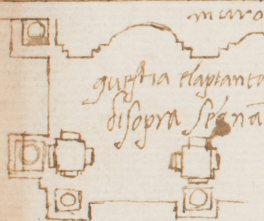 muro
questia elapianta
disopra segna